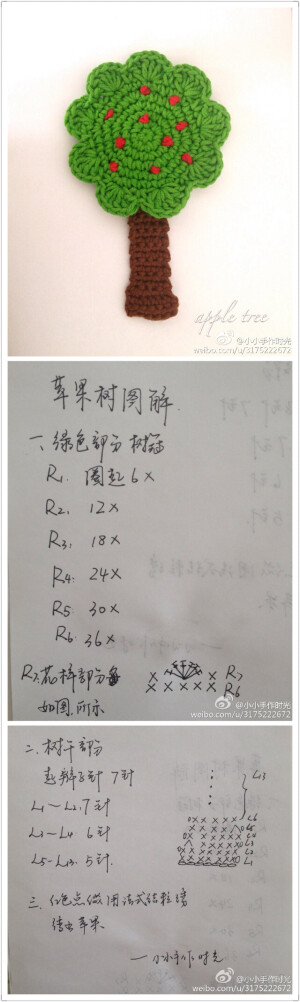 apple tree
@小小手作时光
weibo.com/u/3175222672
苹果树图解
一、绿色部分 树冠
R1: 圈起 6X
R2: 12X
R3: 18X
R4: 24X
R5: 30X
R6: 36X
R7: 花样部分
如图所示
R7
R6
@小小手作时光
weibo.com/u/3175222672
二、树干部分
起辫子针 7针
L1~L2: 7针
L3~L4 6针
L5-L13. 5针.
L13
L6
L5
L4
L3
L2
L1
三、红色点做用法式结粒绣
绣出苹果
—小小手作时光
@小小手作时光
weibo.com/u/3175222672